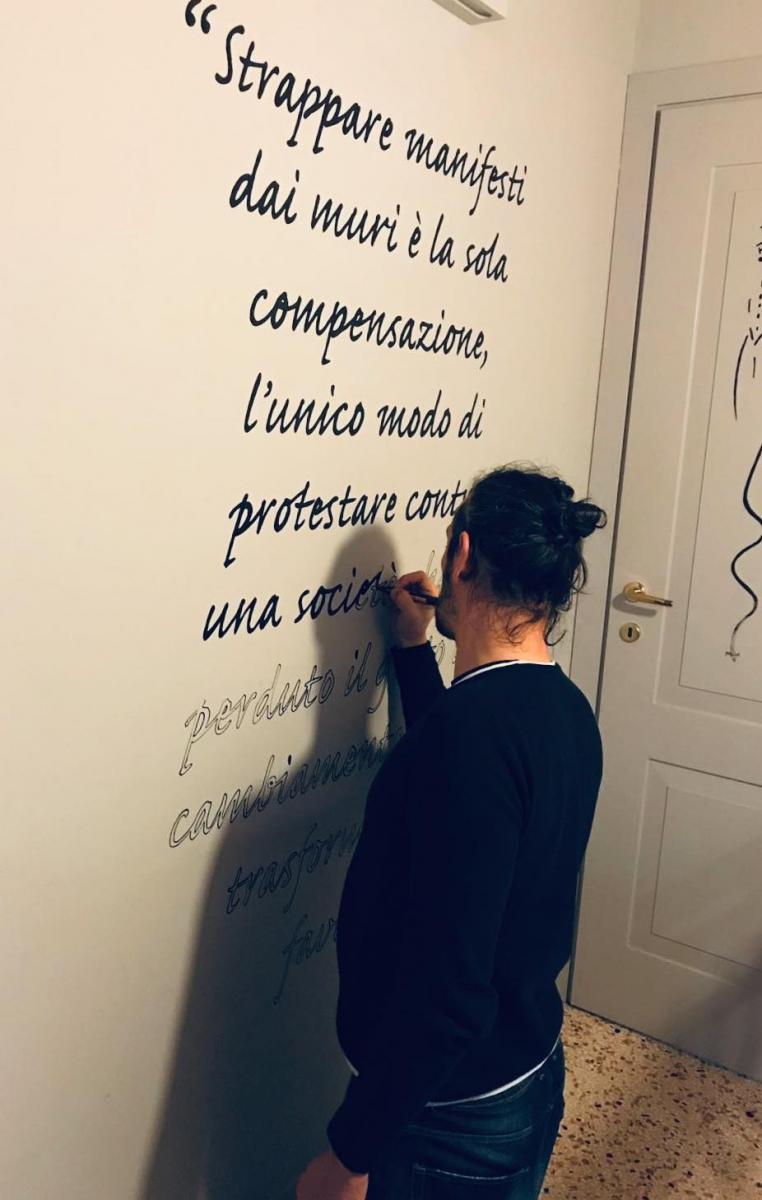 “Strappare manifesti
dai muri è la sola
compensazione,
l'unico modo di
protestare contr
una società
perduto il
cambiament
trasform
fav